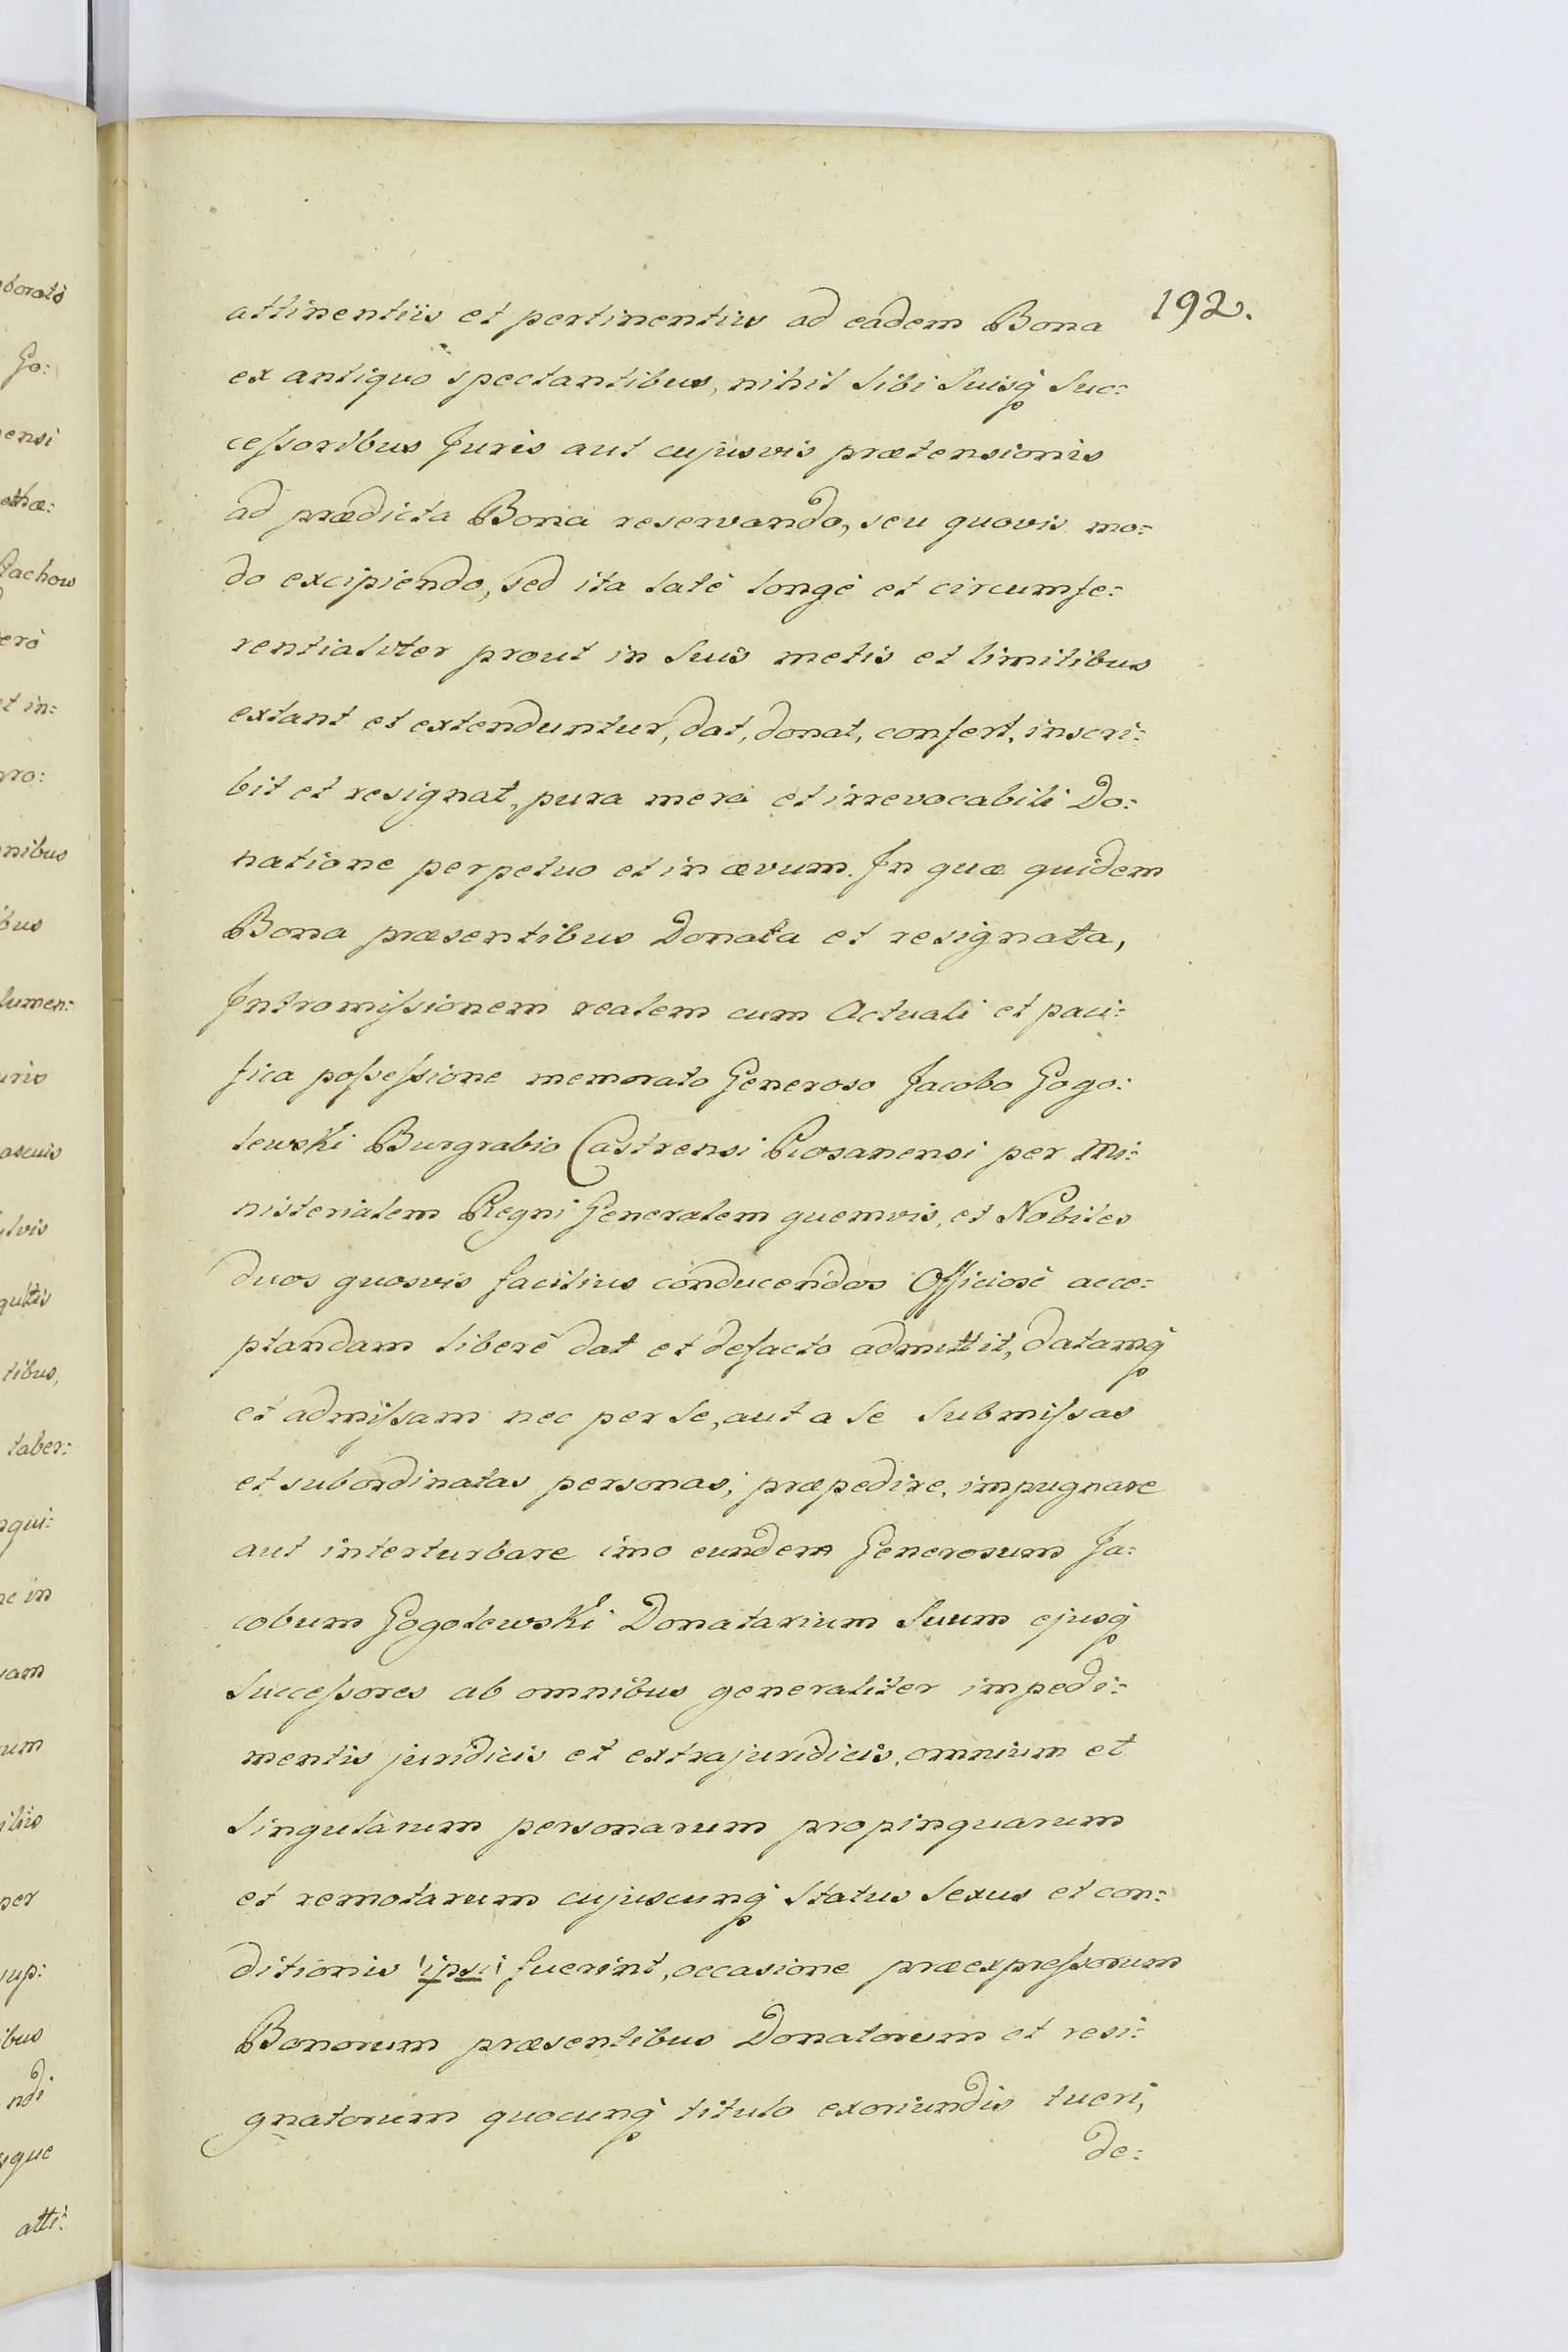 192.
attinentiis et pertinentiis ad eadem Bona
ex antiquo spectantibus, nihil sibi Suisq̃ Suc:
cessoribus Juris aut cujusvis prætensionis
ad prædicta Bona reservando, seu quovis mo:
do excipiendo, sed ita latè longè et circumfe:
rentialiter prout in Suis metis et limitibus
extant et extenduntur, dat, donat, confert, inscri:
bit et resignat, pura mera et irrevocabili Do:
natione perpetuo et in ævum. In quæ quidem
Bona præsentibus Donata et resignata,
Intromissionem realem cum Actuali et paci:
fica possessione memorato Generoso Jacobo Gogo:
lewski Burgrabio Castrensi Rosanensi per Mi:
nisterialem Regni Generalem quemvis, et Nobiles
duos quosvis facilius conducendos Officiosè acce:
ptandam liberè dat et defacto admittit, datamq̃
et admissam nec per se, aut a se submissas
et subordinatas personas, præpedire, impugnare
aut interturbare imo eundem Generosum Ja:
cobum Gogolewski Donatarium Suum ejusq̃
Successores ab omnibus generaliter impedi:
mentis juridicis et extrajuridicis, omnium et
singularum personarum propinquarum
et remotarum cujuscunq̃ Status Sexus et con:
ditionis ipsi fuerint, occasione præexpressorum
Bonorum præsentibus Donatorum et resi:
gnatorum quocunq̃ titulo exoriundis tueri,
de:
ensi
Go:
nibus
bus
lumen:
tibus,
taber:
per
atti: